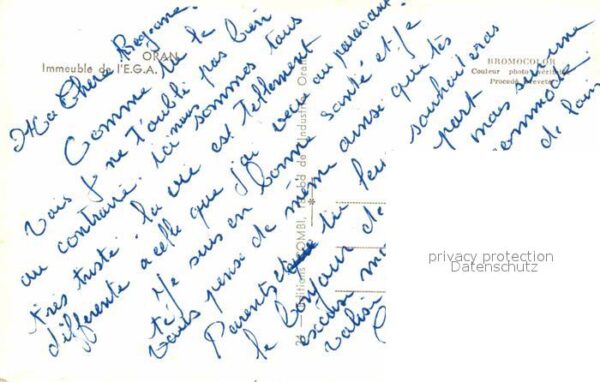 ORAN
Immeuble de l'E.G.A.
BROMOCOLOR
Couleur photo
Procédé
Ma Chère Régine.
Comme tu le
vois je ne t'oublie pas bien
au contraire. ici nous sommes tous
très triste. la vie est tellement
différente à celle que j'ai vécu au paravant.
Je suis en bonne santé et je
vous pense de même ainsi que tes
Parents tu leur souhaiteras
le bonjour de part
excuse mais sur une
valise commode
de loin
privacy protection
Datenschutz